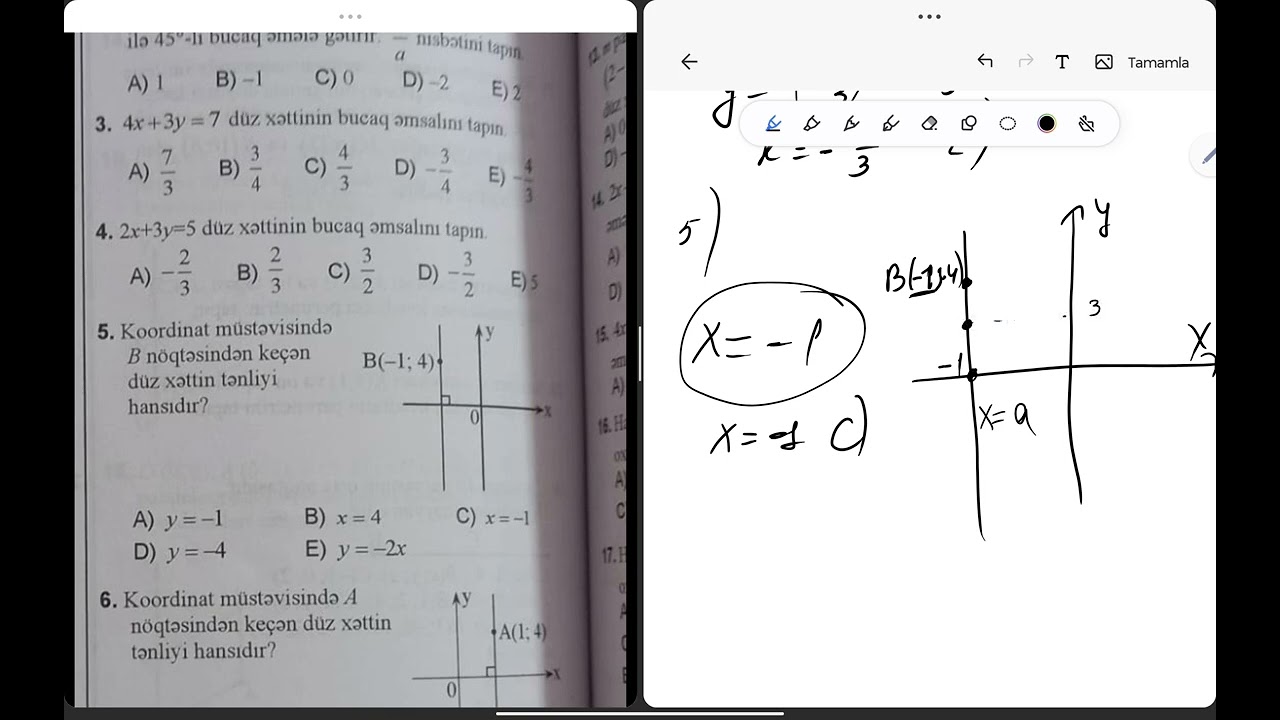 ilə 45°-li bucaq əmələ gətirir. — nisbətini tapın.
a
A) 1 B) –1 C) 0 D) –2 E) 2
3. 4x+3y=7 düz xəttinin bucaq əmsalını tapın.
A) 7/3 B) 3/4 C) 4/3 D) –3/4 E) –4/3
4. 2x+3y=5 düz xəttinin bucaq əmsalını tapın.
A) –2/3 B) 2/3 C) 3/2 D) –3/2 E) 5
5. Koordinat müstəvisində
B nöqtəsindən keçən
düz xəttin tənliyi
hansıdır?
y
B(–1; 4)
0 x
A) y=–1 B) x=4 C) x=–1
D) y=–4 E) y=–2x
6. Koordinat müstəvisində A
nöqtəsindən keçən düz xəttin
tənliyi hansıdır?
y
A(1; 4)
0 x
14. 2x
15. 4x
A)
16. Ha
A)
C
17. H
T Tamamla
5)
y
B(-1;4)
3
x=-1
-1
X
x=a
x=-1 C)